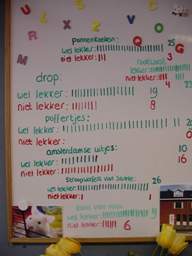 pannenkoeken:
wel lekker: 25
niet lekker: 3
niet lekker: 4
wel lekker: 23
drop:
wel lekker: 19
niet lekker: 8
poffertjes:
wel lekker:
niet lekker:
amsterdamse uitjes:
wel lekker: 10
niet lekker: 16
Stroopwafels van
wel lekker: 26
niet lekker: 1
wel lekker: 9
niet lekker: 6